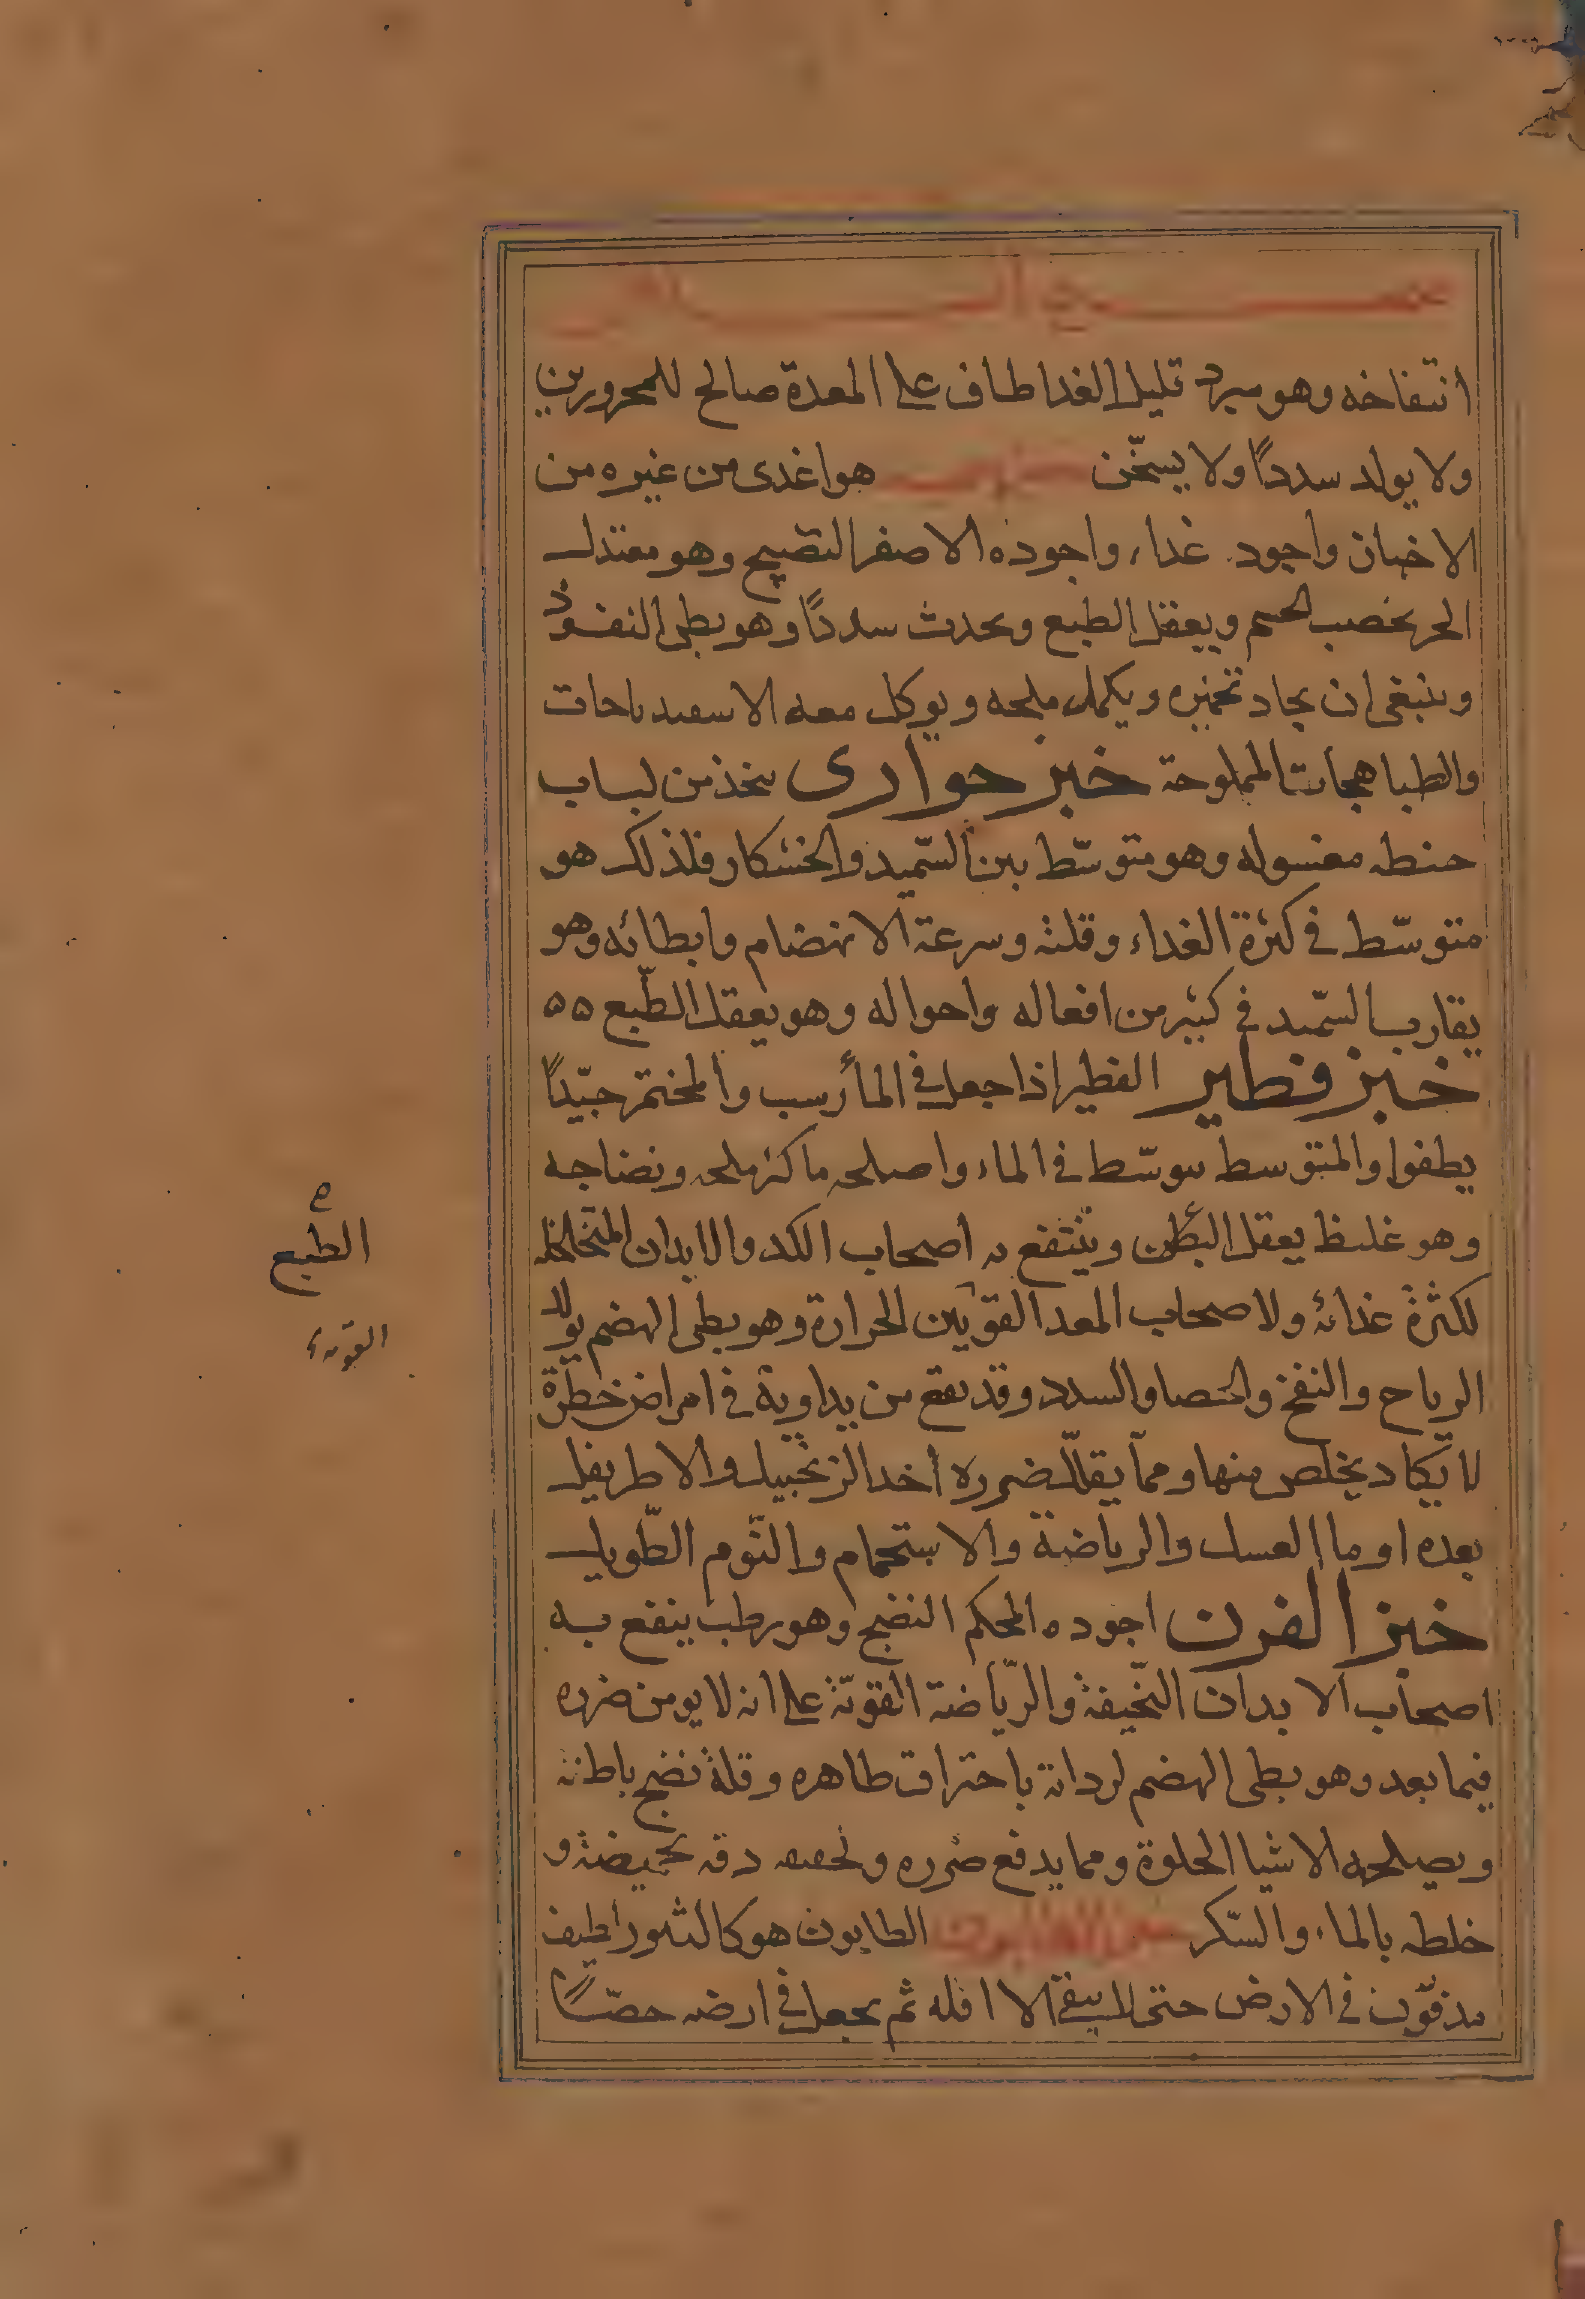 انتفاخه وهو مبرد قليل الغدا طاف على المعدة صالح للمحرورين
ولا يولد سددًا ولا يسخّن هو اغدى من غيره من
الاخبان واجود غداء واجوده الاصفر النضيج وهو معتدل
الحر يخصب الجسم ويعقل الطبع ويحدث سددًا وهو بطى النفوذ
وينبغى ان يجاد تخميره ويكمل ملحه ويوكل معه الاسفيد باحات
والطباهجات المملوحة خبز حوارى يتخذ من لباب
حنطه مغسوله وهو متوسّط بين السّميد والخشكار فلذلك هو
متوسّط في كثرة الغداء وقلته وسرعة الانهضام وابطائه وهو
يقارب السّميد في كثير من افعاله واحواله وهو يعقل الطّبع ٥٥
خبز فطير الفطير اذا جعل في الماء رسب والمختمر جيّدًا
يطفوا والمتوسط يتوسّط في الماء واصلحه ما كثر ملحه ونضاجه
وهو غليظ يعقل البطن وينتفع به اصحاب الكد والابدان المتخلخله
لكثرة غذائه ولاصحاب المعد القويين الحرارة وهو بطى الهضم يولد
الرياح والنفخ والحصا والسدد وقد يقع من يداويه في امراض خطرة
لا يكاد يخلص منها وممّا يقلّل ضرره اخد الزنجبيل والاطريفل
بعده او ماء العسل والرياضة والاستحمام والنّوم الطّويل
خبز الفرن اجوده المحكم النضج وهو رطب ينفع به
اصحاب الابدان النّحيفة والرّياضة القويّة على انه لا يومن ضرره
فيما بعد وهو بطى الهضم لرداته باحتراق ظاهره وقلة نضج باطنه
ويصلحه الاشيا الحلوة ومما يدفع ضرره دقه و
خلطه بالماء والسّكر خبز الطابون الطابون هو كالتنور لطيف
مدفون في الارض حتى لا يبقى الا اقله ثم يجعل في ارضه حصًا
الطبع
القويه